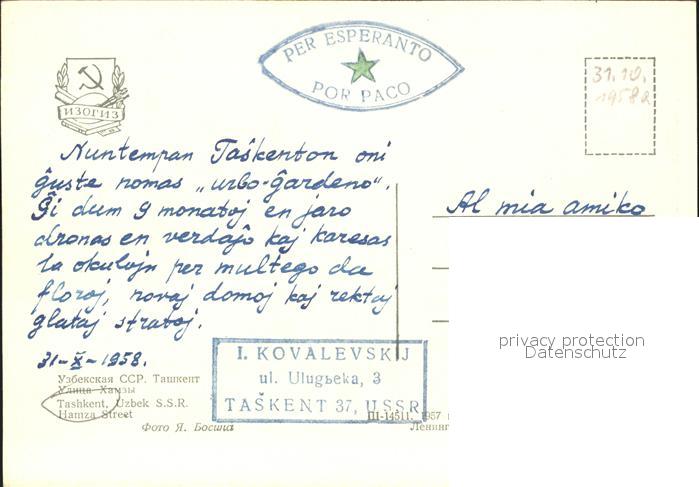 PER ESPERANTO
POR PACO
ИЗОГИЗ
31.10.
1958
Nuntempan Taŝkenton oni
ĝuste nomas „urbo-ĝardeno".
Ĝi dum 9 monatoj en jaro
dronas en verdaĵo kaj karesas
la okulojn per multego da
floroj, novaj domoj kaj rektaj
glataj stratoj.
31-X-1958.
Al mia amiko
privacy protection
Datenschutz
I. KOVALEVSKIJ
ul. Ulugьeka, 3
TAŜKENT 37, USSR
Узбекская ССР. Ташкент
Улица Хамзы
Tashkent, Uzbek S.S.R.
Hamza Street
Фото Я. Босина
III-14511. 1957
Ленинг